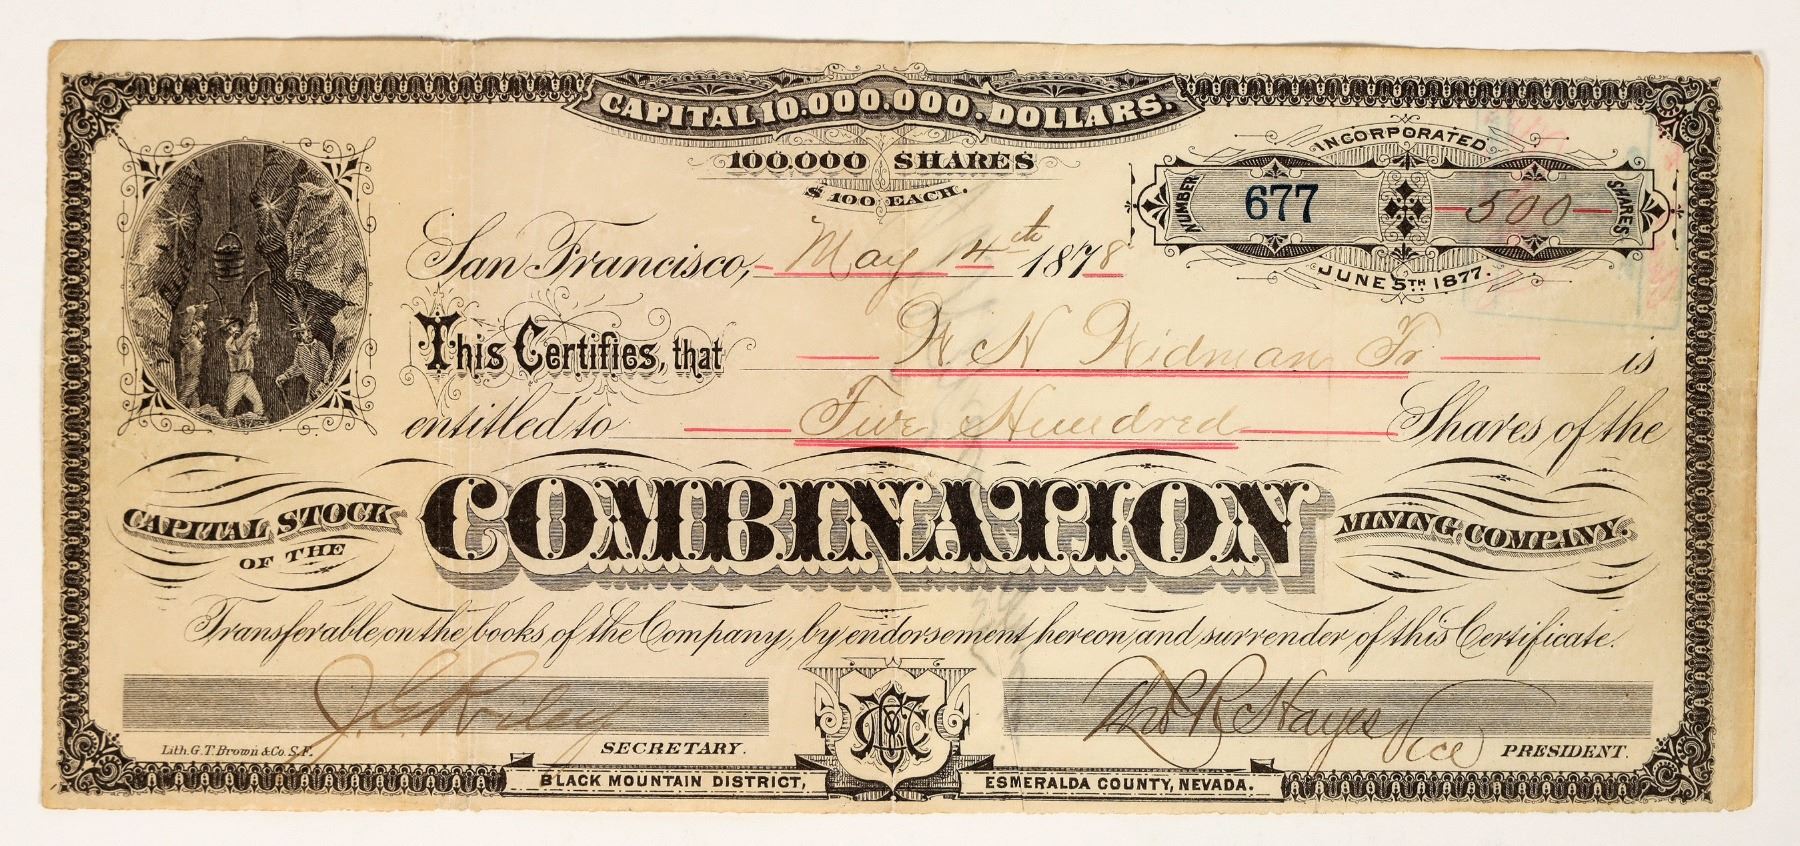 CAPITAL 10.000.000. DOLLARS.
100.000 SHARES
$100 EACH.
INCORPORATED
NUMBER 677 500 SHARES
JUNE 5TH 1877.
San Francisco, May 14th 1878
This Certifies, that H N Hidman Jr is
entitled to Five Hundred Shares of the
CAPITAL STOCK OF THE COMBINATION MINING COMPANY.
Transferable on the books of the Company, by endorsement hereon and surrender of this Certificate.
J. G. Riley SECRETARY.
Thos R Hayes Vice PRESIDENT.
Lith. G.T. Brown & Co. S.F.
BLACK MOUNTAIN DISTRICT, ESMERALDA COUNTY, NEVADA.